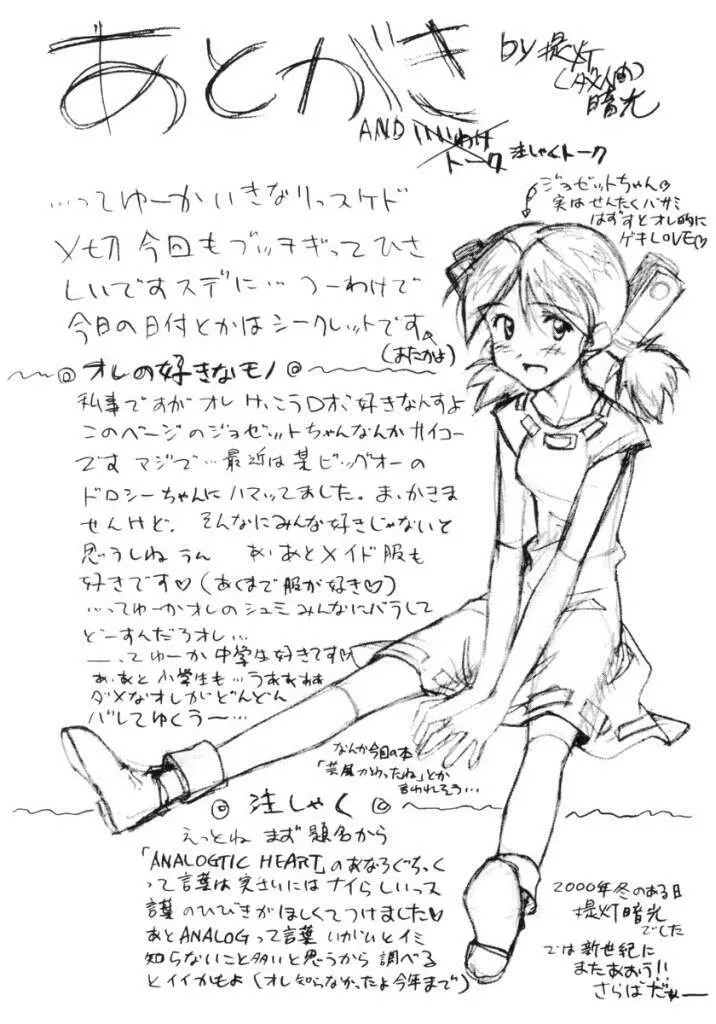 あとがき
by 提灯
(ダメ人間)
暗光
AND いいわけ
トーク 注しゃくトーク
ジョゼットちゃん♡
実はせんたくバサミ
はずすとオレ的に
ゲキLOVE♡
…ってゆーか いきなりっスケド
〆切 今回もブッチギって ひさ
しいですスデに… つーわけで
今日の日付とかはシークレットです。
(またかよ)
◎ オレの好きなモノ ◎
私事ですが オレ けっこうロボ好きなんすよ
このページのジョゼットちゃんなんかサイコー
です マジで… 最近は某ビッグオーの
ドロシーちゃんにハマッてました。ま、かきま
せんけど。 そんなにみんな好きじゃないと
思うしね うん あ、あとメイド服も
好きです♡(あくまで服が好き♡)
…ってゆーかオレのシュミみんなにバラして
どーすんだろオレ…
——ってゆーか 中学生好きです♡
あ、あと小学生も…うああああ
ダメなオレがどんどん
バレてゆくぅ〜…
なんか今回の本
「芸風かわったね」とか
言われそう…
◎ 注しゃく ◎
えっとね まず 題名から
「ANALOGTIC HEART」のあなろぐちっく
って言葉は実さいにはナイらしいっス
言葉のひびきがほしくてつけました♡
あとANALOGって言葉 いがいとイミ
知らないこと多いと思うから 調べる
とイイかもよ (オレ知らなかったよ今年まで)
2000年冬のある日
提灯暗光
でした
では新世紀に
またあおう!!
さらばだぁー